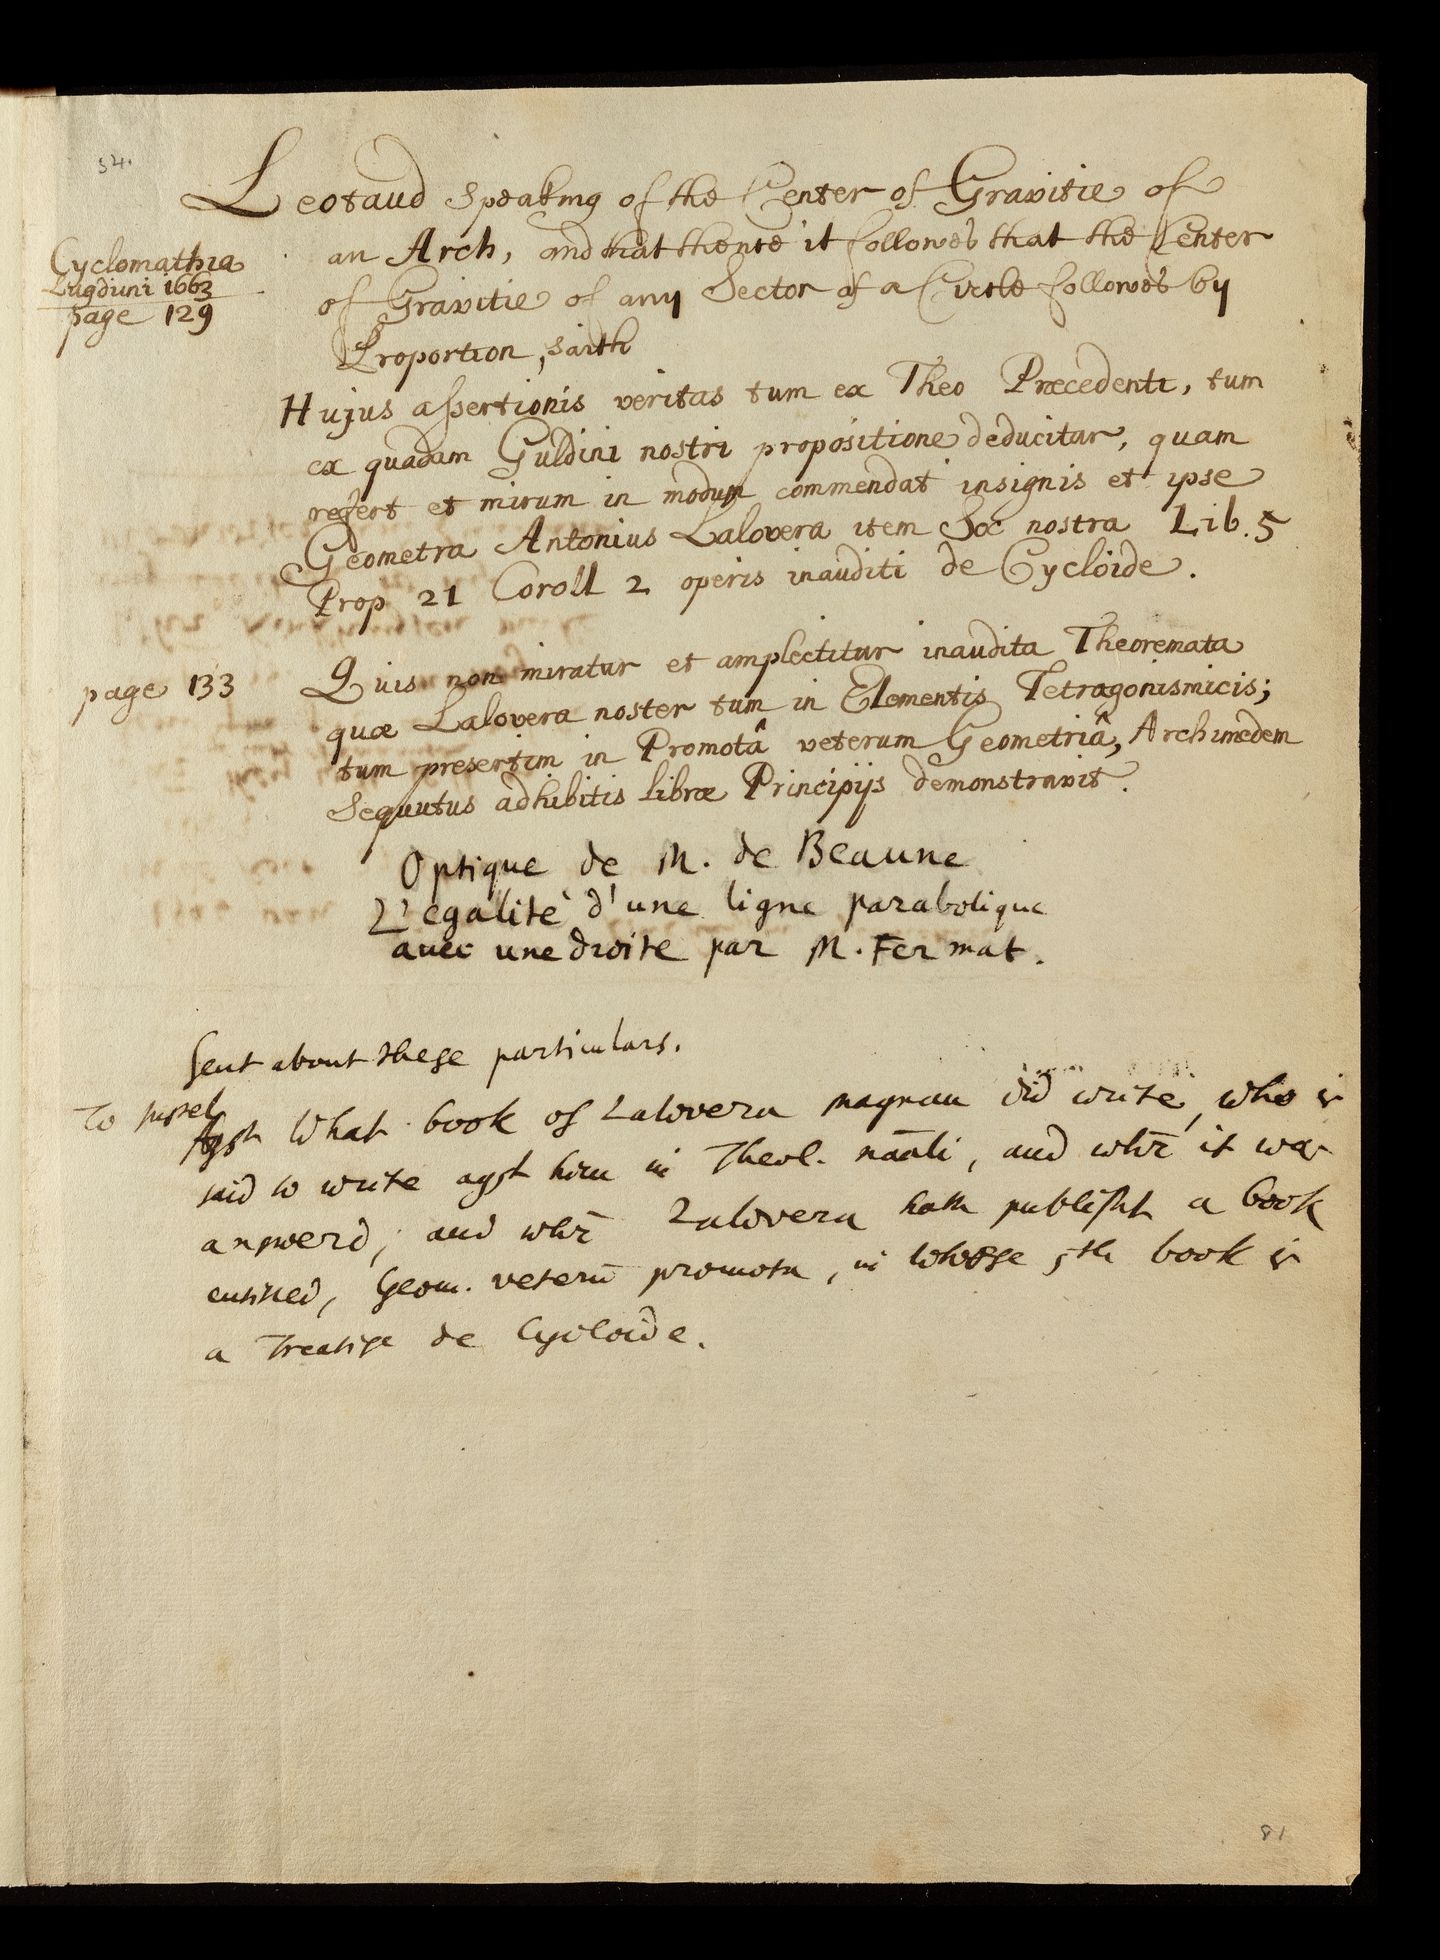 54.
Leotaud Speaking of the Center of Gravitie of
an Arch, and that thence it followes that the Center
of Gravitie of any Sector of a Circle followes by
Proportion, saith
Cyclomathia
Lugduni 1663
page 129
Hujus assertionis veritas tum ex Theo Præcedenti, tum
ex quadam Guldini nostri propositione deducitur, quam
refert et mirum in modum commendat insignis et ipse
Geometra Antonius Lalovera item Soc nostra Lib. 5
Prop 21 Coroll 2 operis inauditi de Cycloide.
page 133
Quis non miratur et amplectitur inaudita Theoremata
quæ Lalovera noster tum in Elementis Tetragonismicis;
tum presertim in Promotâ veterum Geometriâ, Archimedem
Sequutus adhibitis libræ Principijs demonstravit.
Optique de M. de Beaune
L'egalité d'une ligne parabolique
avec une droite par M. Fermat.
Sent about these particulars.
To
Agst What book of Lalovera magnan did write, who is
said to write agst him in Theol. nāāli, and whr̄ it was
answerd; and whr̄ Lalovera hath publisht a book
entitled, Geom. veterū promota, in whose 5th book is
a Treatise de Cycloide.
81